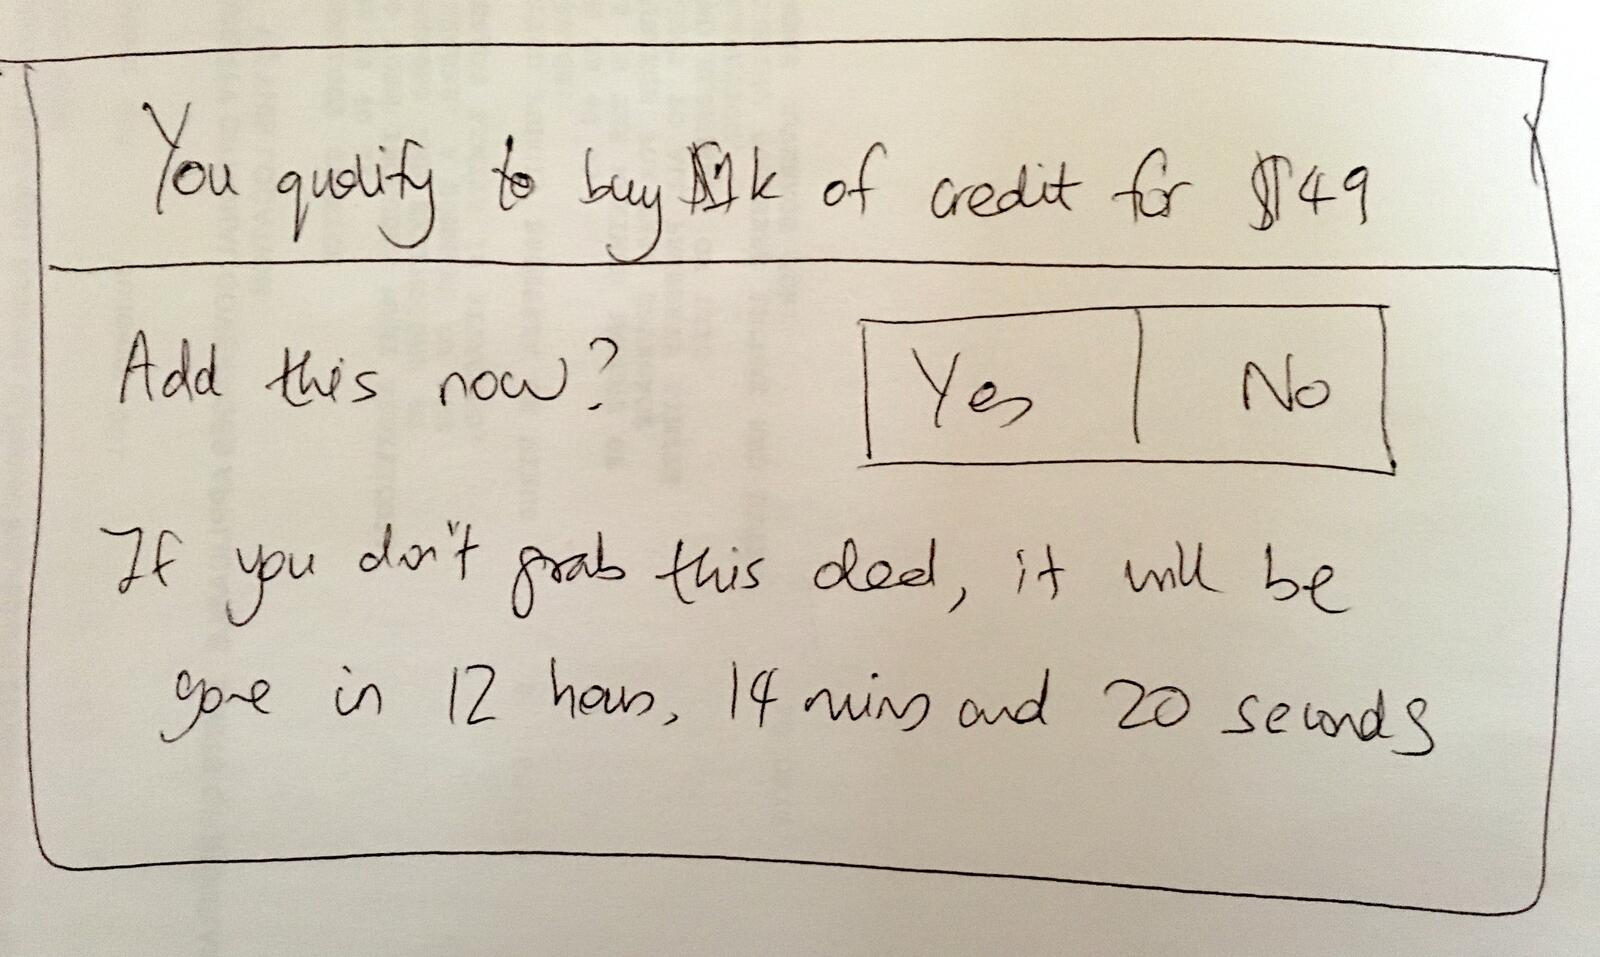 You qualify to buy $1k of credit for $49
Add this now? Yes No
If you don't grab this deal, it will be
gone in 12 hours, 14 mins and 20 seconds